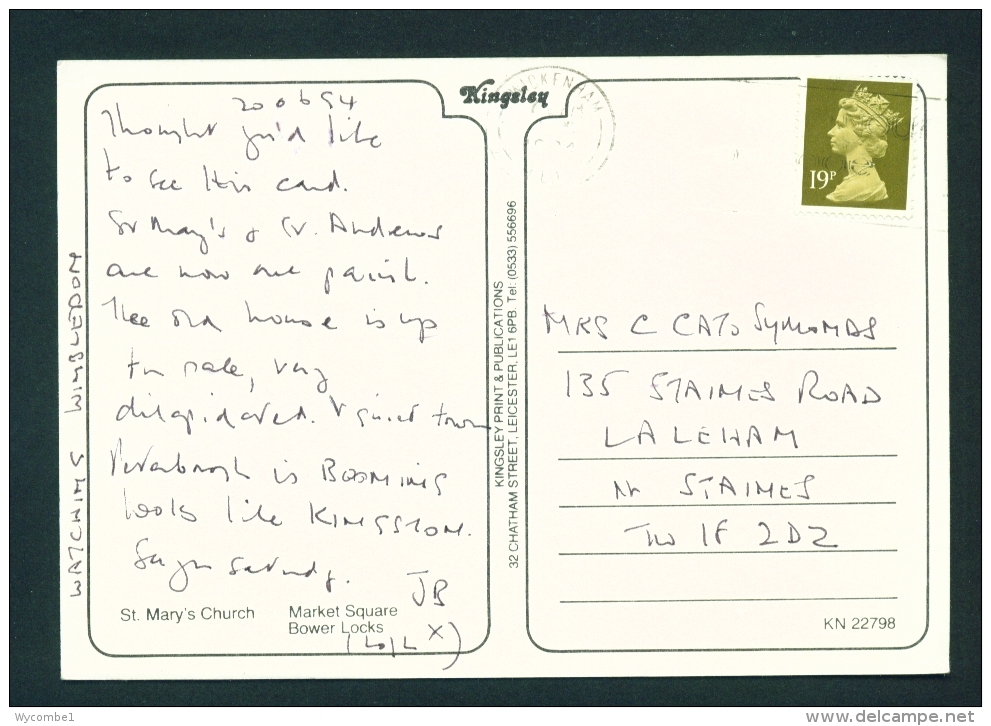 Kingsley
200694
Thought you'd like
to see this card.
St Mary's & St. Andrews
are now one parish.
The old house is up
for sale, very
dilapidated. V quiet town
Peterborough is BOOMING
looks like KINGSTON.
See you Saturday.
JB
WATCHING WIMBLEDON
St. Mary's Church
Market Square
Bower Locks
X
KINGSLEY PRINT & PUBLICATIONS
32 CHATHAM STREET, LEICESTER, LE1 6PB. Tel: (0533) 556696
19P
MRS C CATO SYMONDS
135 STAINES ROAD
LALEHAM
Nr STAINES
TW 18 2DZ
KN 22798
Wycombe1
delcampe.net